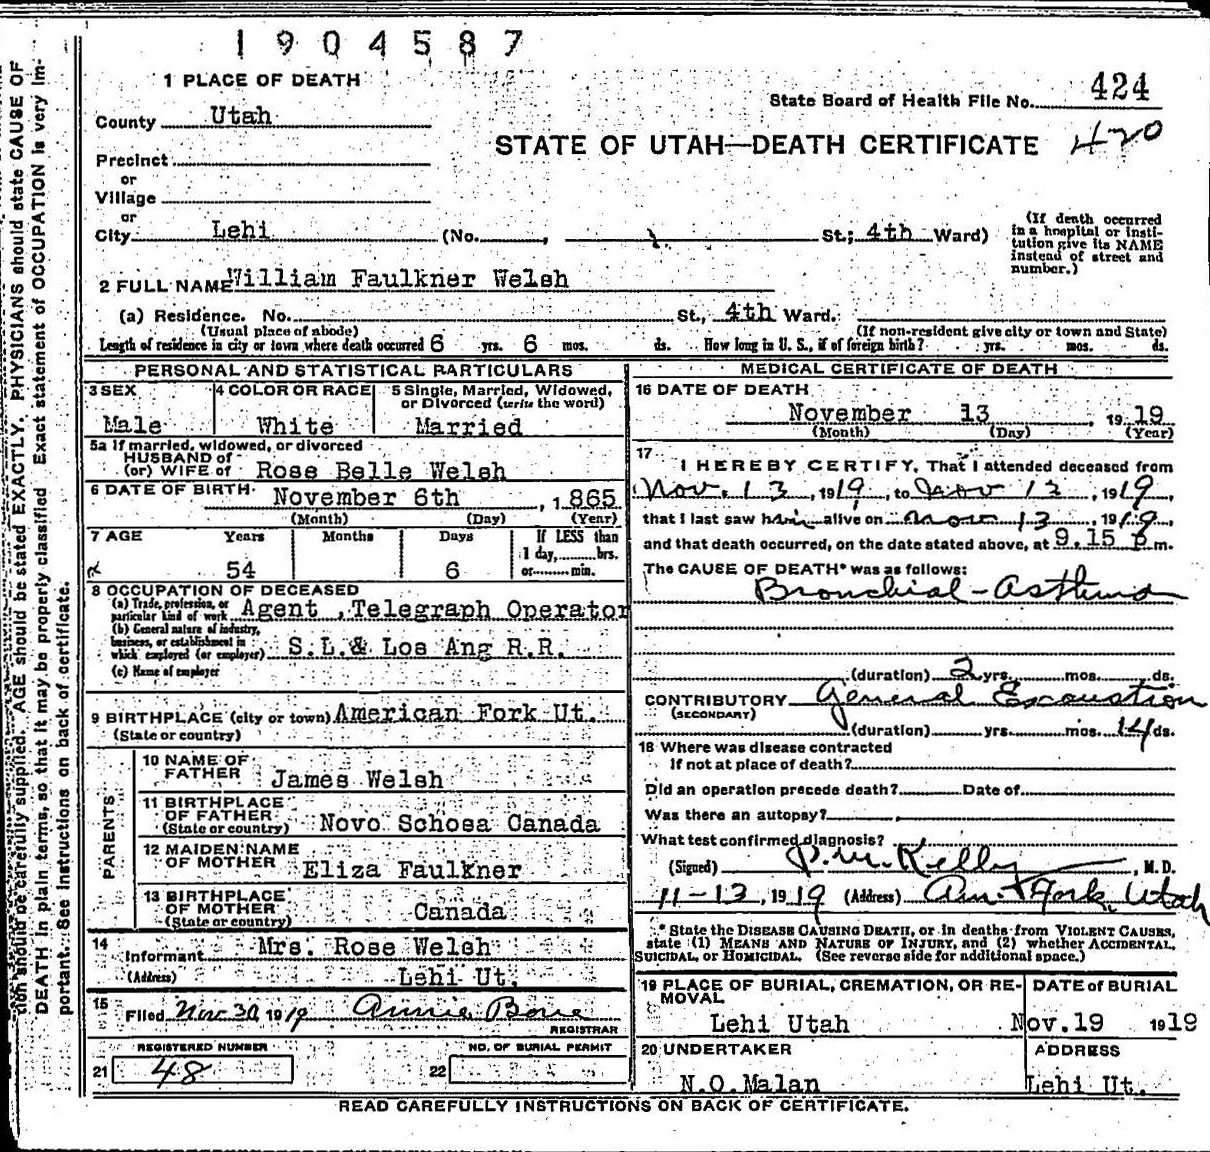 1904587
1 PLACE OF DEATH
State Board of Health File No. 424
County Utah
STATE OF UTAH—DEATH CERTIFICATE 420
Precinct
or
Village
or
City Lehi (No. , St.; 4th Ward)
(If death occurred in a hospital or institution give its NAME instead of street and number.)
2 FULL NAME William Faulkner Welsh
(a) Residence. No. St., 4th Ward.
(Usual place of abode) (If non-resident give city or town and State)
Length of residence in city or town where death occurred 6 yrs. 6 mos. ds. How long in U. S., if of foreign birth? yrs. mos. ds.
PERSONAL AND STATISTICAL PARTICULARS
3 SEX 4 COLOR OR RACE 5 Single, Married, Widowed, or Divorced (write the word)
Male White Married
5a If married, widowed, or divorced
HUSBAND of
(or) WIFE of Rose Belle Welsh
6 DATE OF BIRTH November 6th , 1865
(Month) (Day) (Year)
7 AGE Years Months Days If LESS than
1 day, hrs.
54 6 or min.
8 OCCUPATION OF DECEASED
(a) Trade, profession, or particular kind of work Agent ,Telegraph Operator
(b) General nature of industry, business, or establishment in which employed (or employer) S.L.& Los Ang R.R.
(c) Name of employer
9 BIRTHPLACE (city or town) American Fork Ut.
(State or country)
PARENTS
10 NAME OF FATHER James Welsh
11 BIRTHPLACE OF FATHER (State or country) Novo Schosa Canada
12 MAIDEN NAME OF MOTHER Eliza Faulkner
13 BIRTHPLACE OF MOTHER (State or country) Canada
14 Informant Mrs. Rose Welsh
(Address) Lehi Ut.
15 Filed Nov 30, 1919 Annie Bone
REGISTRAR
REGISTERED NUMBER NO. OF BURIAL PERMIT
21 48 22
MEDICAL CERTIFICATE OF DEATH
16 DATE OF DEATH
November 13 , 1919
(Month) (Day) (Year)
17
I HEREBY CERTIFY, That I attended deceased from
Nov. 13, 1919, to Nov 13, 1919,
that I last saw him alive on Nov 13, 1919,
and that death occurred, on the date stated above, at 9.15 P m.
The CAUSE OF DEATH* was as follows:
Bronchial-Asthma
(duration) 2 yrs. mos. ds.
CONTRIBUTORY General Excaustion
(SECONDARY)
(duration) yrs. mos. 14 ds.
18 Where was disease contracted
If not at place of death?
Did an operation precede death? Date of
Was there an autopsy?
What test confirmed diagnosis?
(Signed) P.M. Kelly, M.D.
11-13, 1919 (Address) Am. Fork, Utah
* State the DISEASE CAUSING DEATH, or in deaths from VIOLENT CAUSES,
state (1) MEANS AND NATURE OF INJURY, and (2) whether ACCIDENTAL,
SUICIDAL, or HOMICIDAL. (See reverse side for additional space.)
19 PLACE OF BURIAL, CREMATION, OR REMOVAL DATE of BURIAL
Lehi Utah Nov.19 1919
20 UNDERTAKER ADDRESS
N.O.Malan Lehi Ut.
READ CAREFULLY INSTRUCTIONS ON BACK OF CERTIFICATE.
tion should be carefully supplied. AGE should be stated EXACTLY. PHYSICIANS should state CAUSE OF
DEATH in plain terms, so that it may be properly classified. Exact statement of OCCUPATION is very im-
portant. See instructions on back of certificate.